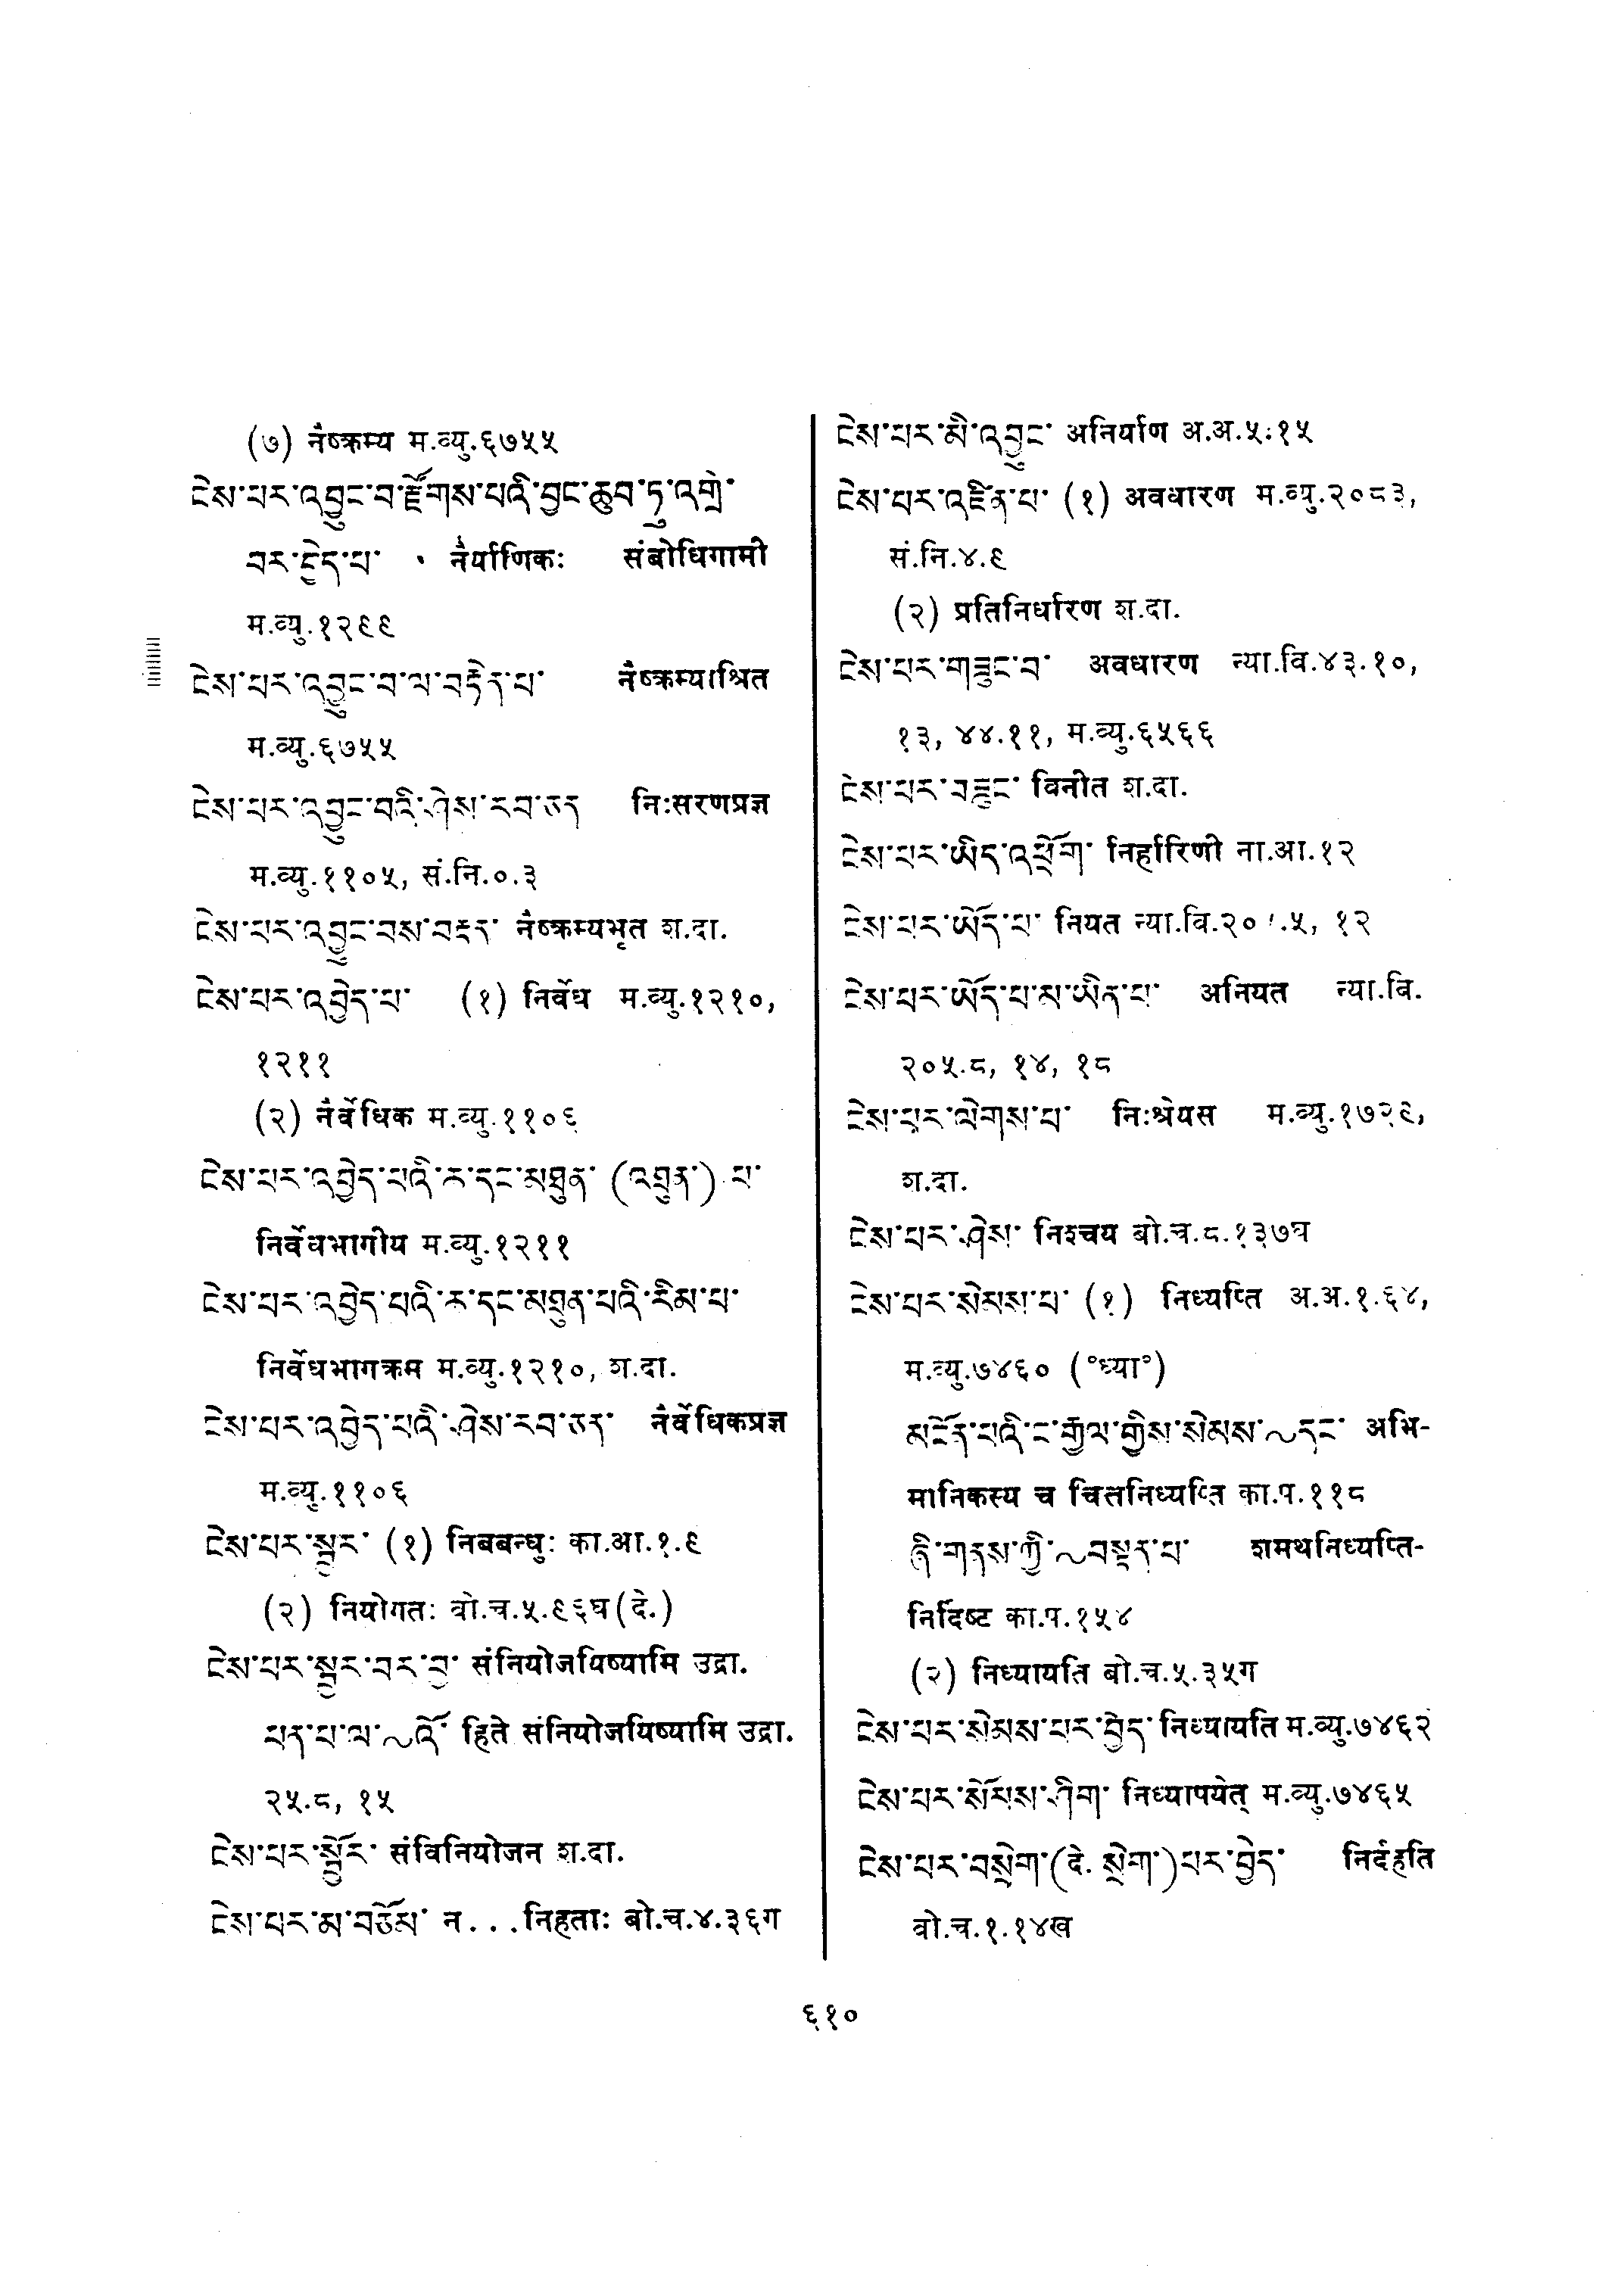 (७) नैष्क्रम्य म.व्यु.६७५५
ངེས་པར་འབྱུང་བ་རྫོགས་པའི་བྱང་ཆུབ་ཏུ་འགྲེ་
བར་བྱེད་པ་ नैर्याणिकः संबोधिगामी
म.व्यु.१२९९
ངེས་པར་འབྱུང་བ་ལ་བརྟེན་པ་ नैष्क्रम्याश्रित
म.व्यु.६७५५
ངེས་པར་འབྱུང་བའི་ཤེས་རབ་ཅན निःसरणप्रज्ञ
म.व्यु.११०५, सं.नि.०.३
ངེས་པར་འབྱུང་བས་བརྡར་ नैष्क्रम्यभृत श.दा.
ངེས་པར་འབྱེད་པ་ (१) निर्वेध म.व्यु.१२१०,
१२११
(२) नैर्वेधिक म.व्यु.११०६
ངེས་པར་འབྱེད་པའི་ཆ་དང་མཐུན་ (འཐུན་) པ་
निर्वेधभागीय म.व्यु.१२११
ངེས་པར་འབྱེད་པའི་ཆ་དང་མཐུན་པའི་རིམ་པ་
निर्वेधभागक्रम म.व्यु.१२१०, श.दा.
ངེས་པར་འབྱེད་པའི་ཤེས་རབ་ཅན་ नैर्वेधिकप्रज्ञ
म.व्यु.११०६
ངེས་པར་སྦྱར་ (१) निबबन्धुः का.आ.१.९
(२) नियोगतः बो.च.५.९६घ(दे.)
ངེས་པར་སྦྱར་བར་བྱ་ संनियोजयिष्यामि उद्रा.
ཕན་པ་ལ་~འོ་ हिते संनियोजयिष्यामि उद्रा.
२५.८, १५
ངེས་པར་སྦྱོར་ संविनियोजन श.दा.
ངེས་པར་མ་བཅོམ་ न...निहताः बो.च.४.३६ग
ངེས་པར་མི་འབྱུང་ अनिर्याण अ.अ.५.१५
ངེས་པར་འཛིན་པ་ (१) अवधारण म.व्यु.२०८३,
सं.नि.४.९
(२) प्रतिनिर्धारण श.दा.
ངེས་པར་གཟུང་བ་ अवधारण न्या.बि.४३.१०,
१३, ४४.११, म.व्यु.६५६६
ངེས་པར་བཟུང་ विनीत श.दा.
ངེས་པར་ཡིད་འཕྲོག་ निर्हारिणी ना.आ.१२
ངེས་པར་ཡོད་པ་ नियत न्या.बि.२० .५, १२
ངེས་པར་ཡོད་པ་མ་ཡིན་པ་ अनियत न्या.बि.
२०५.८, १४, १८
ངེས་པར་ལེགས་པ་ निःश्रेयस म.व्यु.१७२९,
श.दा.
ངེས་པར་ཤེས་ निश्चय बो.च.८.१३७घ
ངེས་པར་སེམས་པ་ (१) निध्यप्ति अ.अ.१.६४,
म.व्यु.७४६० (°ध्या°)
མངོན་པའི་ང་རྒྱལ་གྱིས་སེམས་~དང་ अभि-
मानिकस्य च चित्तनिध्यप्ति का.प.११८
ཞི་གནས་ཀྱི་~བསྟན་པ་ शमथनिध्यप्ति-
निर्दिष्ट का.प.१५४
(२) निध्यायति बो.च.५.३५ग
ངེས་པར་སེམས་པར་བྱེད་ निध्यायति म.व्यु.७४६२
ངེས་པར་སོམས་ཤིག་ निध्यापयेत् म.व्यु.७४६५
ངེས་པར་བསྲེག་(दे. སྲེག་)པར་བྱེད་ निर्दहति
बो.च.१.१४ख
६१०